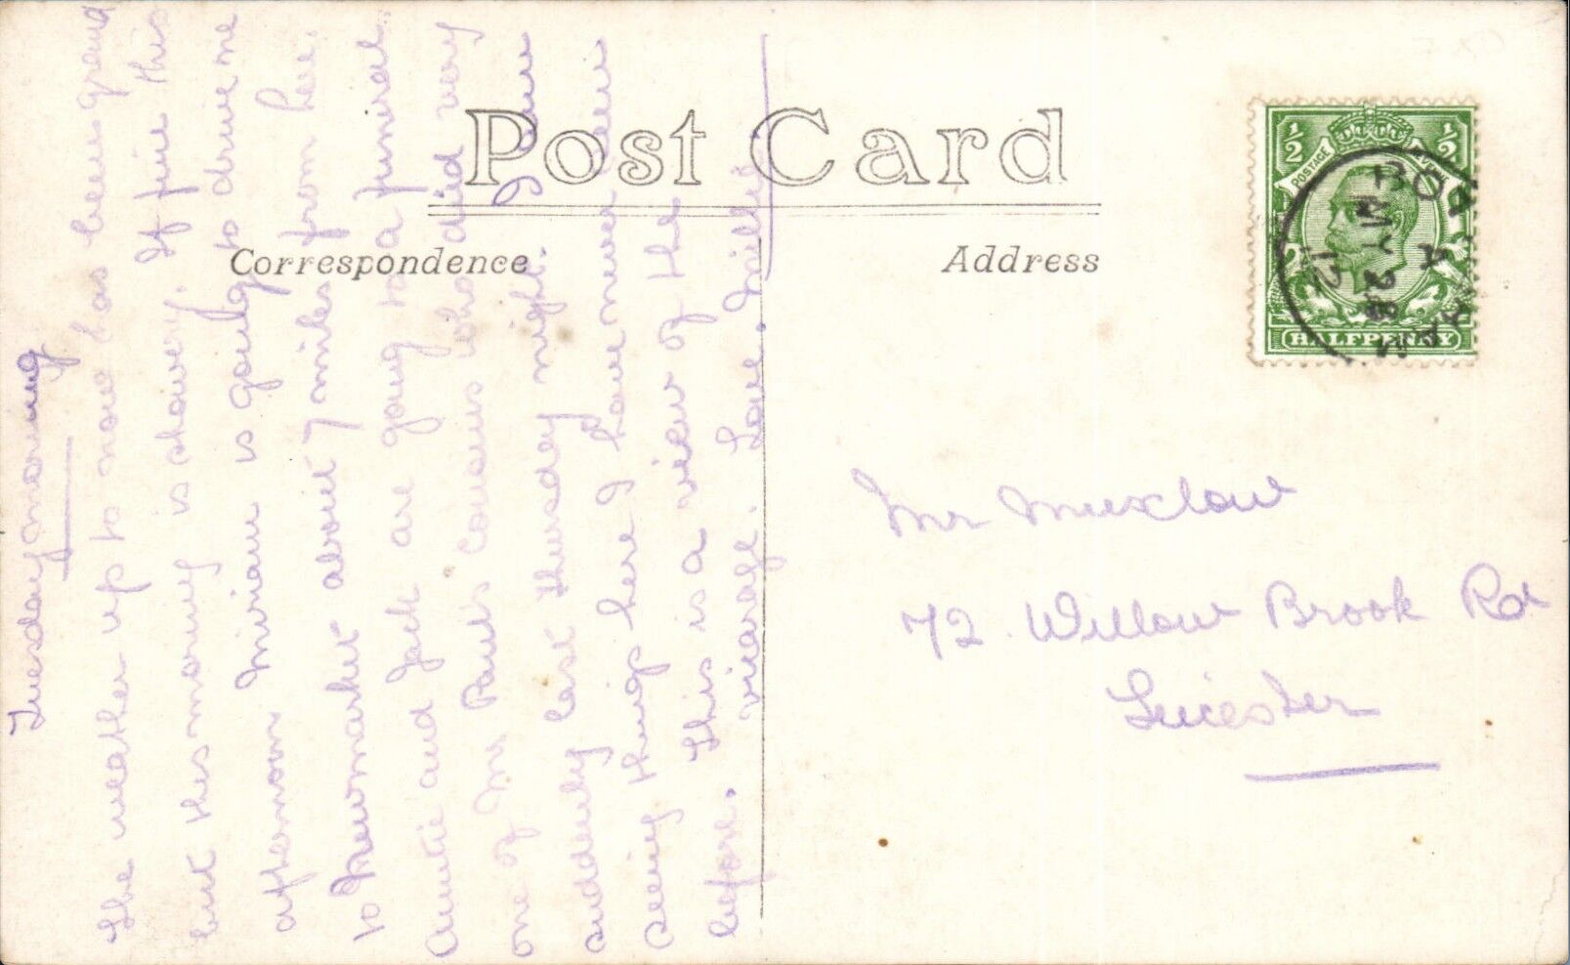 Post Card
Correspondence
Address
½ ½
POSTAGE
HALFPENNY
MY 28
12
Tuesday morning
The weather up to now has been grand
but this morning is showery. If fine this
afternoon Miriam is going to drive me
to Newmarket about 7 miles from here.
Auntie and Jack are going to a funiral.
one of Mr Paul's cousins who died very
suddenly last Thursday night. I am
seeing things here I have never seen
before. This is a view of the
vicarage. Love. Millie.
Mr Muxlow
72. Willow Brook Rd
Leicester